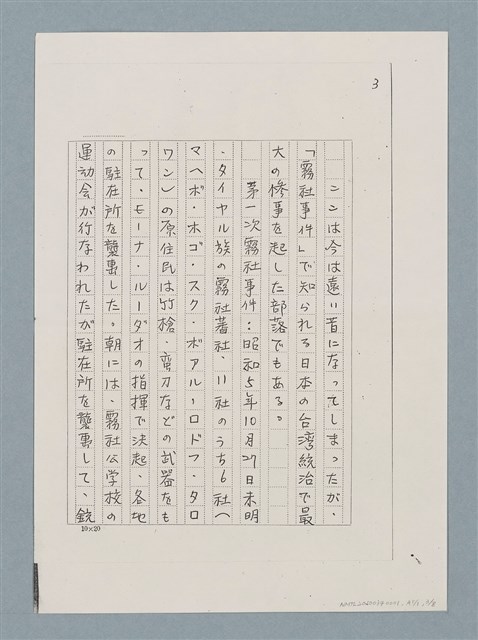 3
ここは今は遠い昔になってしまったが、
「霧社事件」で知られる日本の台湾統治で最
大の惨事を起した部落でもある。
第一次霧社事件:昭和5年10月27日未明
・タイヤル族の霧社蕃社・11社のうち6社(
マヘボ・ホゴ・スク・ボアルン・ロドフ・タロ
ワン)の原住民は竹槍・蛮刀などの武器をも
って、モーナ・ルーダオの指揮で決起、各地
の駐在所を襲撃した。朝には、霧社公学校の
運動会が行なわれたが駐在所を襲撃して、銃
10×20